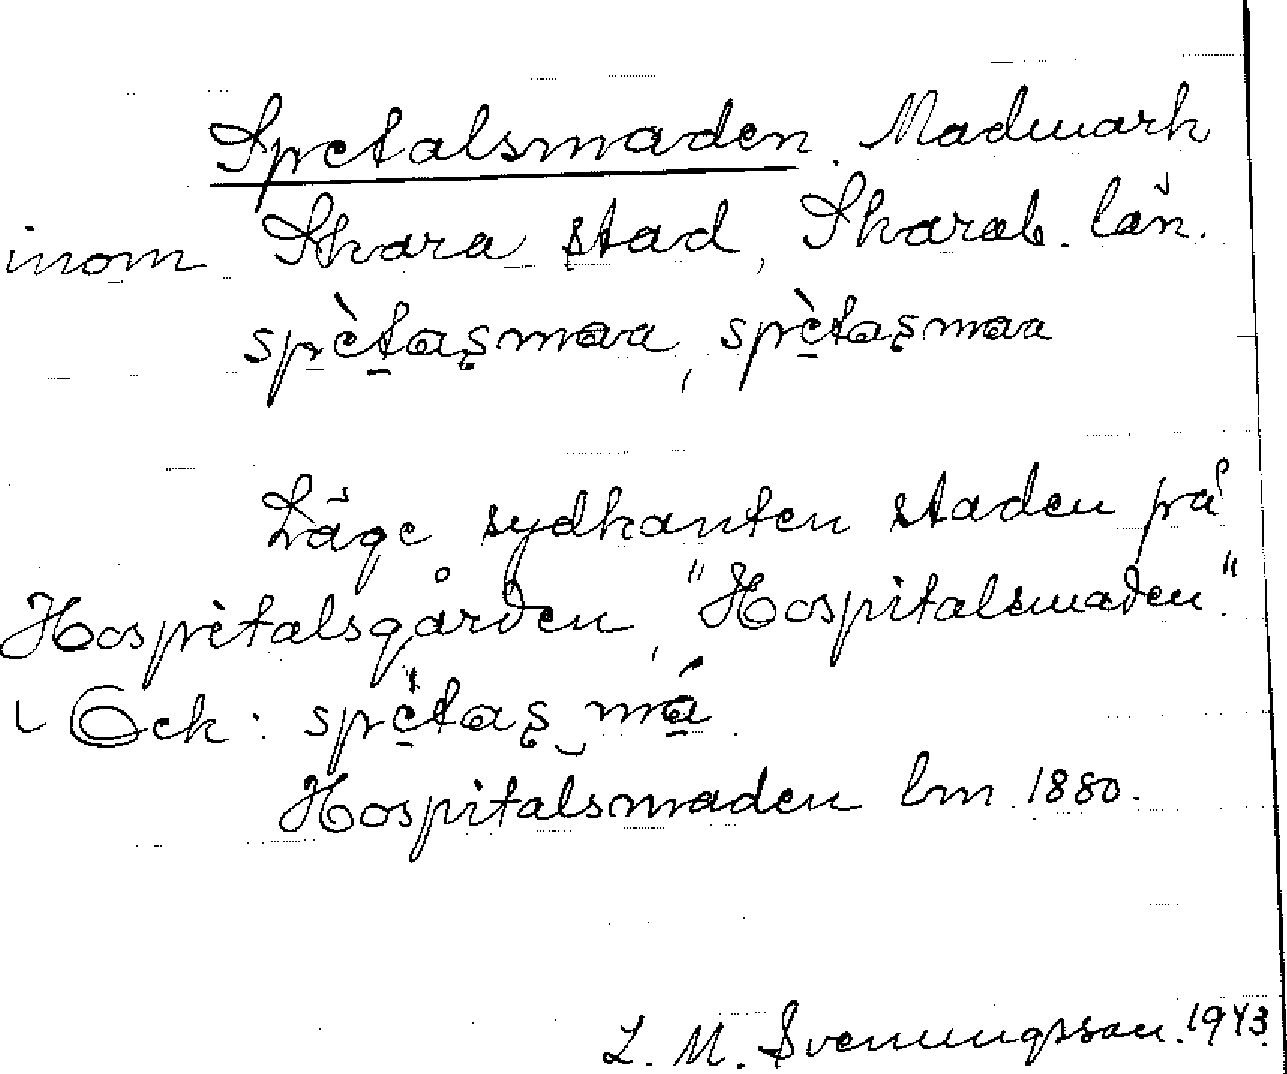 Spetalsmaden. Madmark
inom Skara stad, Skarab. län.
spètaʂmaa, spètaʂmaa
Läge sydkanten staden på
Hospitalsgården, "Hospitalsmaden".
Ock: spètaʂ má
Hospitalsmaden lm 1880.
L. M. Svenungsson. 1943